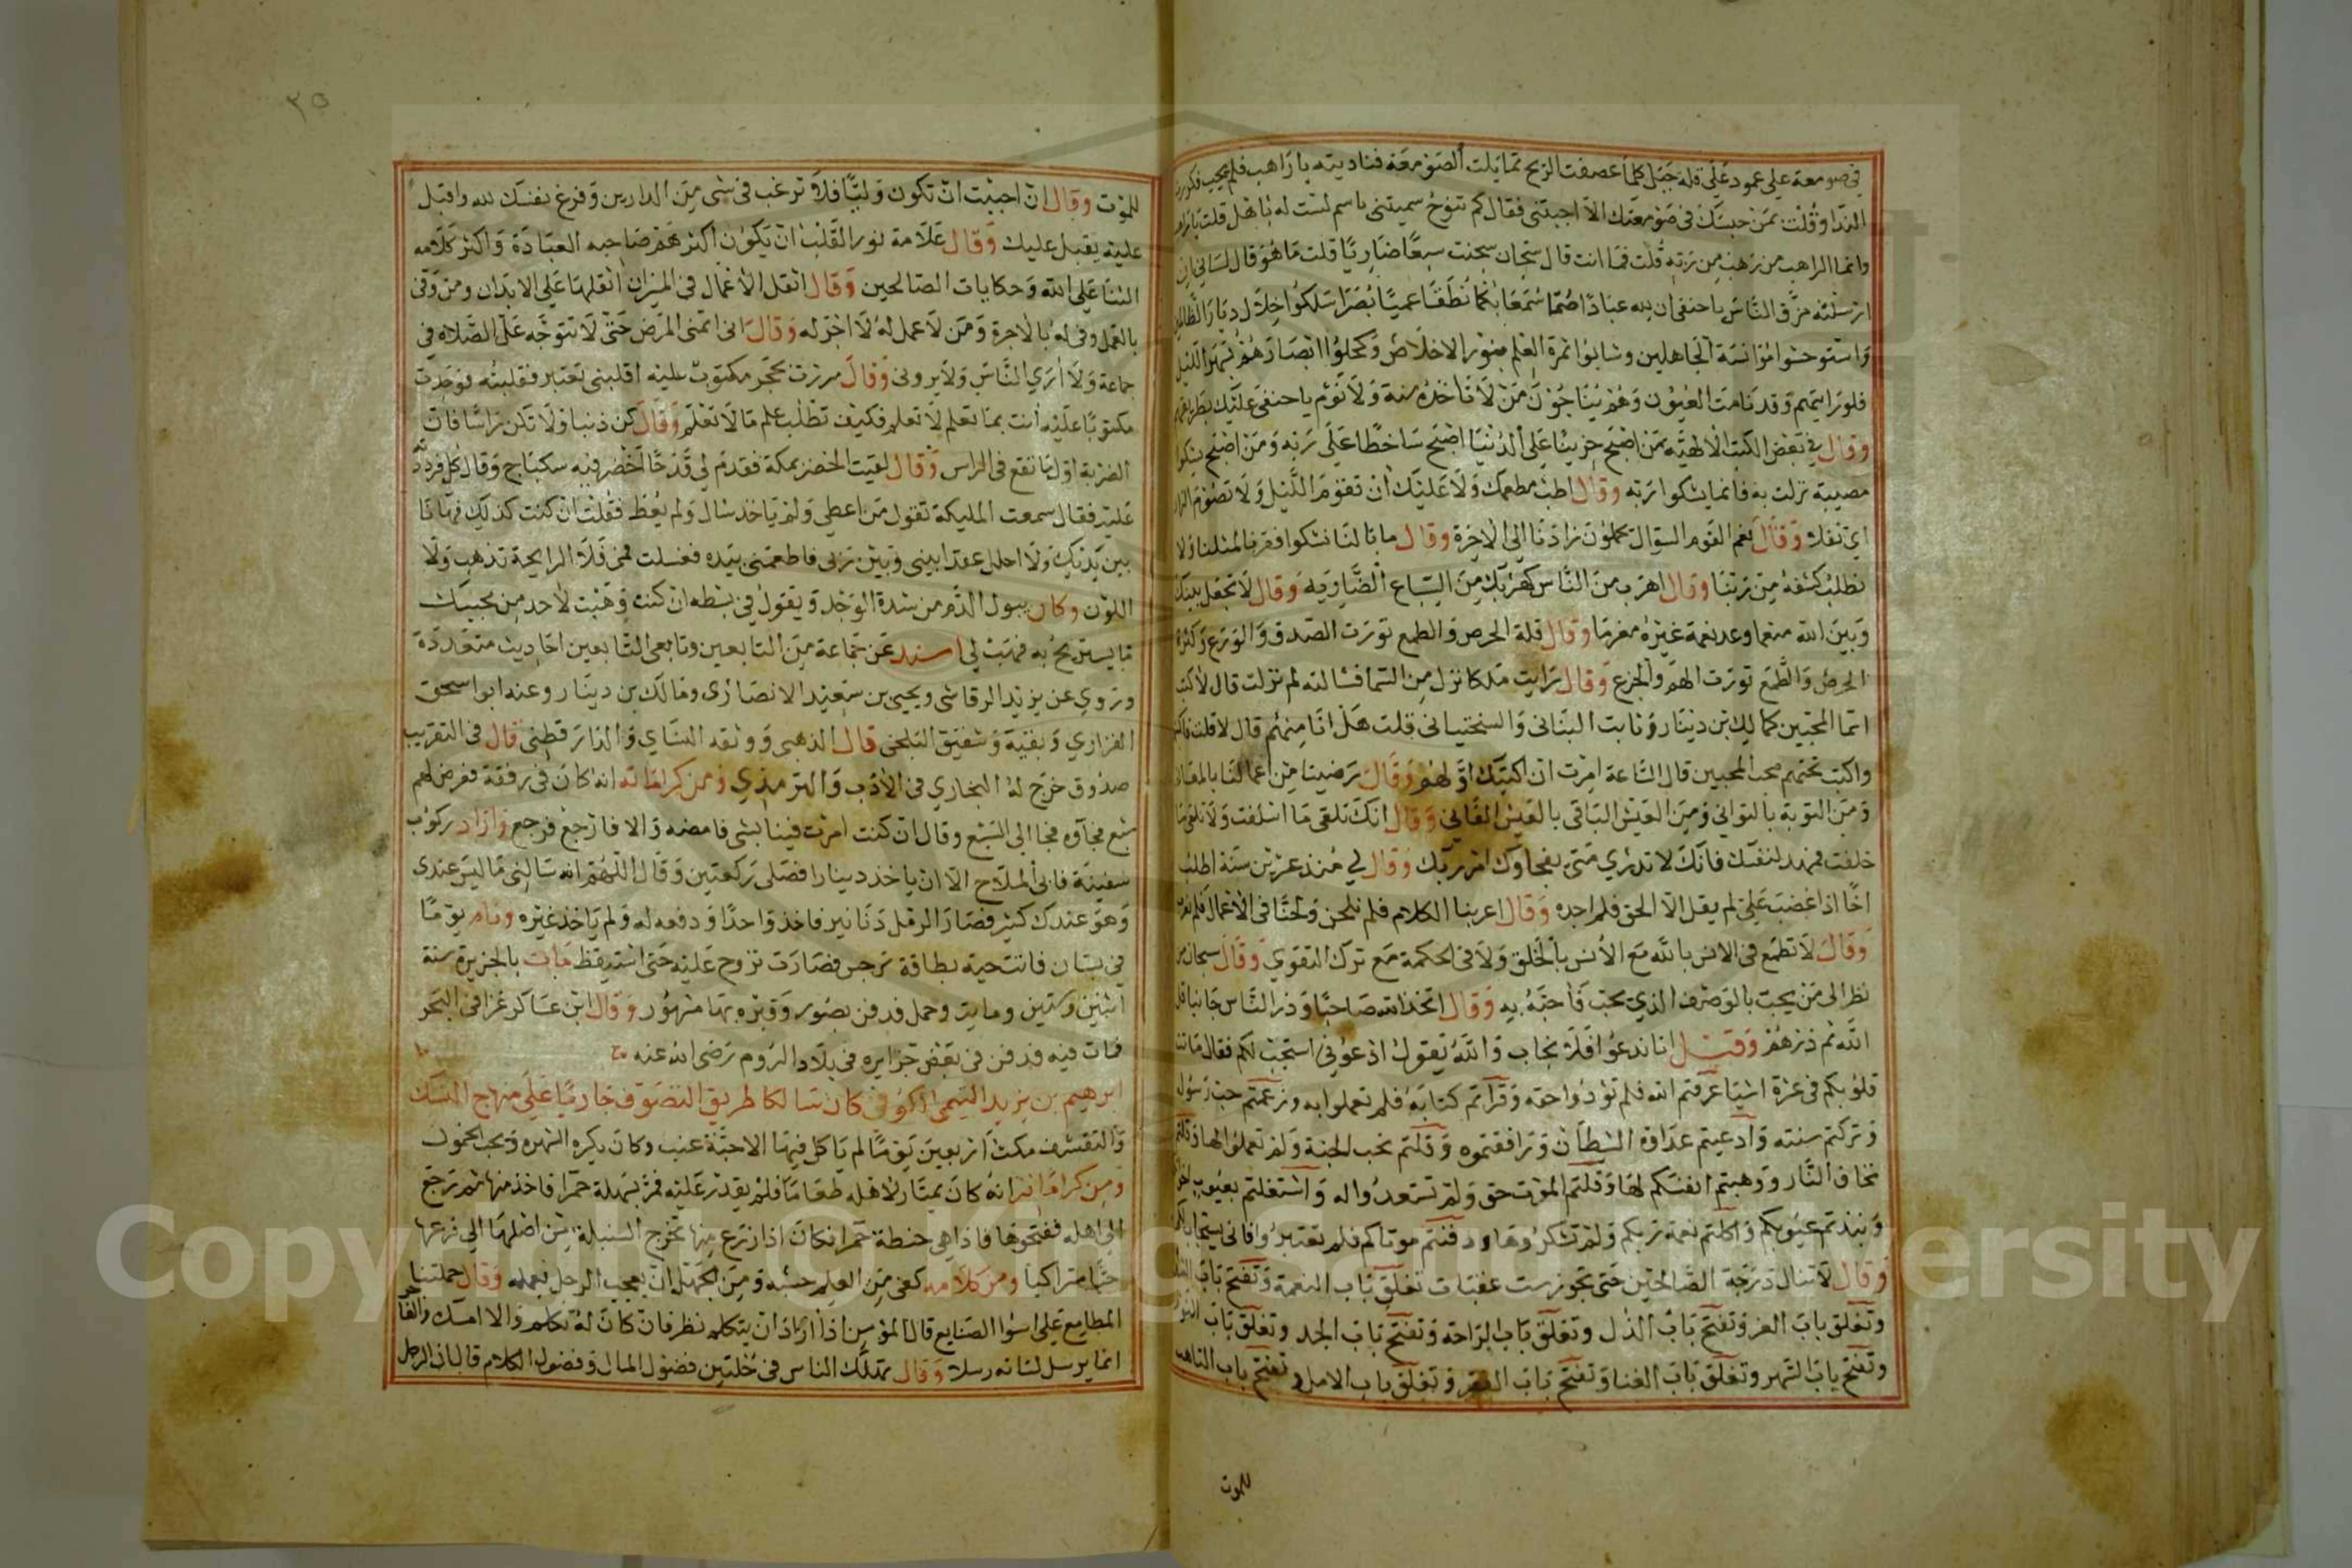 في صومعة علي عمود علي قلة جبل كلما عصفت الريح تمايلت الصومعة فناديته يا راهب فلم يجب فكررت
الندا وقلت بمن حبسك في صومعتك الا اجبتني فقال كم تنوح سميتني باسم لست له باهل قلت يا راهب
وانما الراهب من رهب من ربه قلت فما انت قال سجان سجنت سبعا ضاريا قلت ما هو قال لساني ان
ارسلته مزق الناس يا حنفي ان لله عبادا صما سمعا بكما نطقا عميا بصرا سلكوا خلال ديار الظالمين
واستوحشوا مؤانسة الجاهلين وشابوا ثمرة العلم بنور الاخلاص وكحلوا ابصارهم بسهر الليل
فلو رايتهم وقد نامت العيون وهم يناجون من لا تاخذه سنة ولا نوم يا حنفي عليك بطريقهم
وقال في بعض الكتب الالهية من اصبح حزينا علي الدنيا اصبح ساخطا علي ربه ومن اصبح يشكوا
مصيبة نزلت به فانما يشكوا ربه وقال اطب مطعمك ولا عليك ان تقوم الليل ولا تصوم النهار
اي نفلا وقال نعم القوم السؤال يحملون زادنا الي الاخرة وقال ما بالنا نشكوا فقرنا لمثلنا ولا
نطلب كشفه من ربنا وقال اهرب من الناس كهربك من السباع الضاريه وقال لا تجعل بينك
وبين الله منعما وعد نعمة غيره مغرما وقال قلة الحرص والطمع تورث الصدق والورع وكثرة
الحرص والطمع تورث الهم والجزع وقال رايت ملكا نزل من السما فسالته لم نزلت قال لاكتب
اسما المحبين كمالك بن دينار وثابت البناني والسختياني قلت هل انا منهم قال لا قلت فاكتبني
واكتب تحتهم محب المحبين قال الساعة امرت ان اكتبك اولهم وقال رضينا من اعمالنا بالمعاني
ومن التوبة بالتواني ومن العيش الباقي بالعيش الفاني وقال انك تلقي ما اسلفت ولا تلقي ما
خلفت فمهد لنفسك فانك لا تدري متي يفجاوك امر ربك وقال لي منذ عشرين سنة اطلب
اخا اذا غضب علي لم يقل الا الحق فلم اجده وقال اعربنا الكلام فلم نلحن ولحنا في الاعمال فلم نعرب
وقال لا تطمع في الانس بالله مع الانس بالخلق ولا في الحكمة مع ترك التقوي وقال سبحان من
نظر الي من يحب بالوصف الذي يحب فاحبه به وقال اتخذ الله صاحبا وذر الناس جانبا قل
الله ثم ذرهم وقيل انا ندعوا فلا نجاب والله يقول ادعوني استجب لكم فقال ماتت
قلوبكم في عشرة اشيا عرفتم الله فلم تؤدوا حقه وقراتم كتابه فلم تعملوا به وزعمتم حب رسول
وتركتم سنته وادعيتم عداوة الشيطان ورافقتموه وقلتم نحب الجنة ولم تعملوا لها وقلتم
نخاف النار ووهبتم انفسكم لها وقلتم الموت حق ولم تستعدوا له واشتغلتم بعيوب
ونبذتم عيوبكم واكلتم نعمة ربكم ولم تشكروها ودفنتم موتاكم فلم تعتبروا فاني يستجاب لكم
وقال لا تنال درجة الصالحين حتي تجوز ست عقبات تغلق باب النعمة وتفتح باب الشدة
وتغلق باب العز وتفتح باب الذل وتغلق باب الراحة وتفتح باب الجد وتغلق باب النوم
وتفتح باب السهر وتغلق باب الغنا وتفتح باب الفقر وتغلق باب الامل وتفتح باب التاهب
للموت
٣٥
للموت وقال ان احببت ان تكون وليا فلا ترغب في شي من الدارين وفرغ نفسك لله واقبل
عليه يقبل عليك وقال علامة نور القلب ان يكون اكثر هم صاحبه العبادة واكثر كلامه
الثنا علي الله وحكايات الصالحين وقال اثقل الاعمال في الميزان اثقلها علي الابدان ومن وفي
بالعمل وفي له بالاجرة ومن لا عمل له لا اجر له وقال اني اتمني المرض حتي لا تتوجه علي الصلاه في
جماعة ولا اري الناس ولا يروني وقال مررت بحجر مكتوب عليه اقلبني تعتبر فقلبته فوجدت
مكتوبا عليه انت بما تعلم لا تعلم فكيف تطلب علم ما لا تعلم وقال كن ذنبا ولا تكن راسا فان
الضربة اول ما تقع في الراس وقال لقيت الخضر بمكة فقدم لي قدحا اخضر فيه سكباج وقال كل فرددته
عليه فقال سمعت المليكة تقول من اعطي ولم ياخذ سال ولم يعط فقلت ان كنت كذلك فها انا
بين يديك ولا احلل عقدا بيني وبين ربي فاطعمني بيده فغسلت فمي فلا الرايحة تذهب ولا
اللون وكان يبول الدم من شدة الوجد ويقول في بسطه ان كنت وهبت لاحد من محبيك
ما يستريح به فهبت لي اسند عن جماعة من التابعين وتابعي التابعين احاديث متعددة
وروي عن يزيد الرقاشي ويحيي بن سعيد الانصاري ومالك بن دينار وعنه ابو اسحق
الفزاري وبقية وشقيق البلخي قال الذهبي ووثقه النساي والدارقطني قال في التقريب
صدوق خرج له البخاري في الادب والترمذي ومن كراماته انه كان في رفقة فعرض لهم
سبع فجاوه فجا الي السبع وقال ان كنت امرت فينا بشي فامضه والا فارجع فرجع واراد ركوب
سفينة فابي الملاح الا ان ياخذ دينارا فصلي ركعتين وقال اللهم انه سالني ما ليس عندي
وهو عندك كثير فصار الرمل دنانير فاخذ واحدا ودفعه له ولم ياخذ غيره ونام يوما
في بستان فاتت حية بطاقة نرجس فصارت تروح عليه حتي استيقظ مات بالجزيرة سنة
اثنين وستين وماية وحمل فدفن بصور وقبره بها مشهور وقال ابن عساكر غزا في البحر
فمات فيه فدفن في بعض جزايره في بلاد الروم رضي الله عنه
ابرهيم بن يزيد التيمي الكوفي كان سالكا طريق التصوف جاريا علي منهاج النسك
والتقشف مكث اربعين يوما لم ياكل فيها الا حبة عنب وكان يكره الشهره ويحب الخمول
ومن كراماته انه كان يمتار لاهله طعاما فلم يقدر عليه فمر بسهلة حمرا فاخذ منها ثم رجع
الي اهله ففتحوها فاذا هي حنطة حمرا فكان اذا زرع منها تخرج السنبلة من اصلها الي فرعها
حبا متراكبا ومن كلامه كفي من العلم خشيه ومن الجهل ان يعجب الرجل بعمله وقال حملتنا
المطامع علي اسوا الصنايع قال المؤمن اذا اراد ان يتكلم نظر فان كان له تكلم والا امسك والفاجر
انما يرسل لسانه رسلا وقال تهلك الناس في خلتين فضول المال وفضول الكلام قال ان الرجل
Copyright © King Saud University